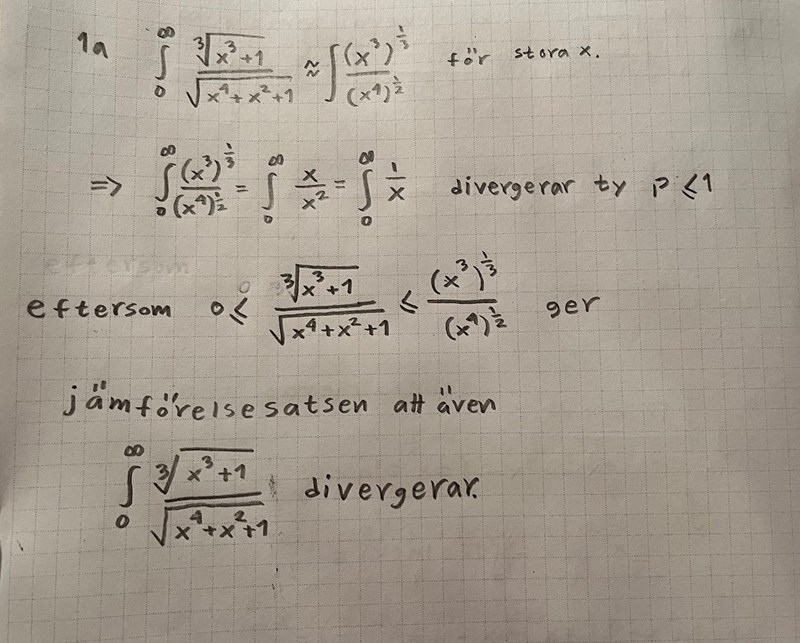 1a ∫₀^∞ ∛(x³+1) / √(x⁴+x²+1) ≈ ∫ (x³)^(1/3) / (x⁴)^(1/2) för stora x.
=> ∫₀^∞ (x³)^(1/3) / (x⁴)^(1/2) = ∫₀^∞ x/x² = ∫₀^∞ 1/x divergerar ty p ≤ 1
eftersom
eftersom 0 ≤ ∛(x³+1) / √(x⁴+x²+1) ≤ (x³)^(1/3) / (x⁴)^(1/2) ger
jämförelsesatsen att även
∫₀^∞ ∛(x³+1) / √(x⁴+x²+1) divergerar.